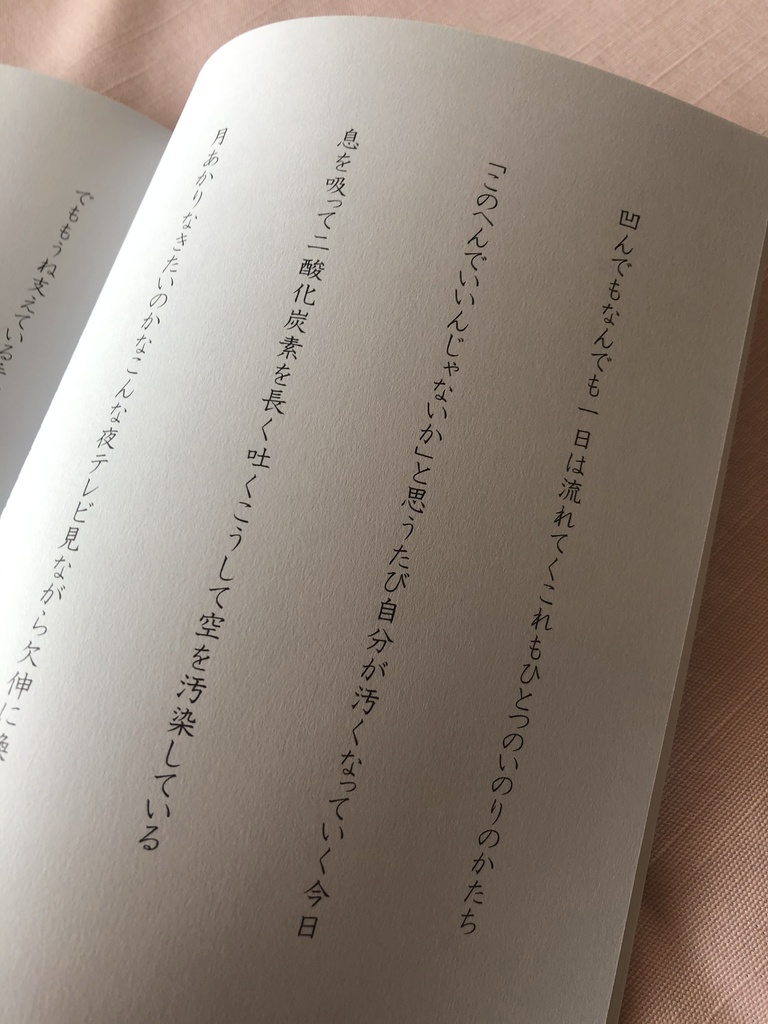 凹んでもなんでも一日は流れてくこれもひとつのいのりのかたち
「このへんでいいんじゃないか」と思うたび自分が汚くなっていく今日
息を吸って二酸化炭素を長く吐くこうして空を汚染している
月あかりなきたいのかなこんな夜テレビ見ながら欠伸に
でももうね支えている